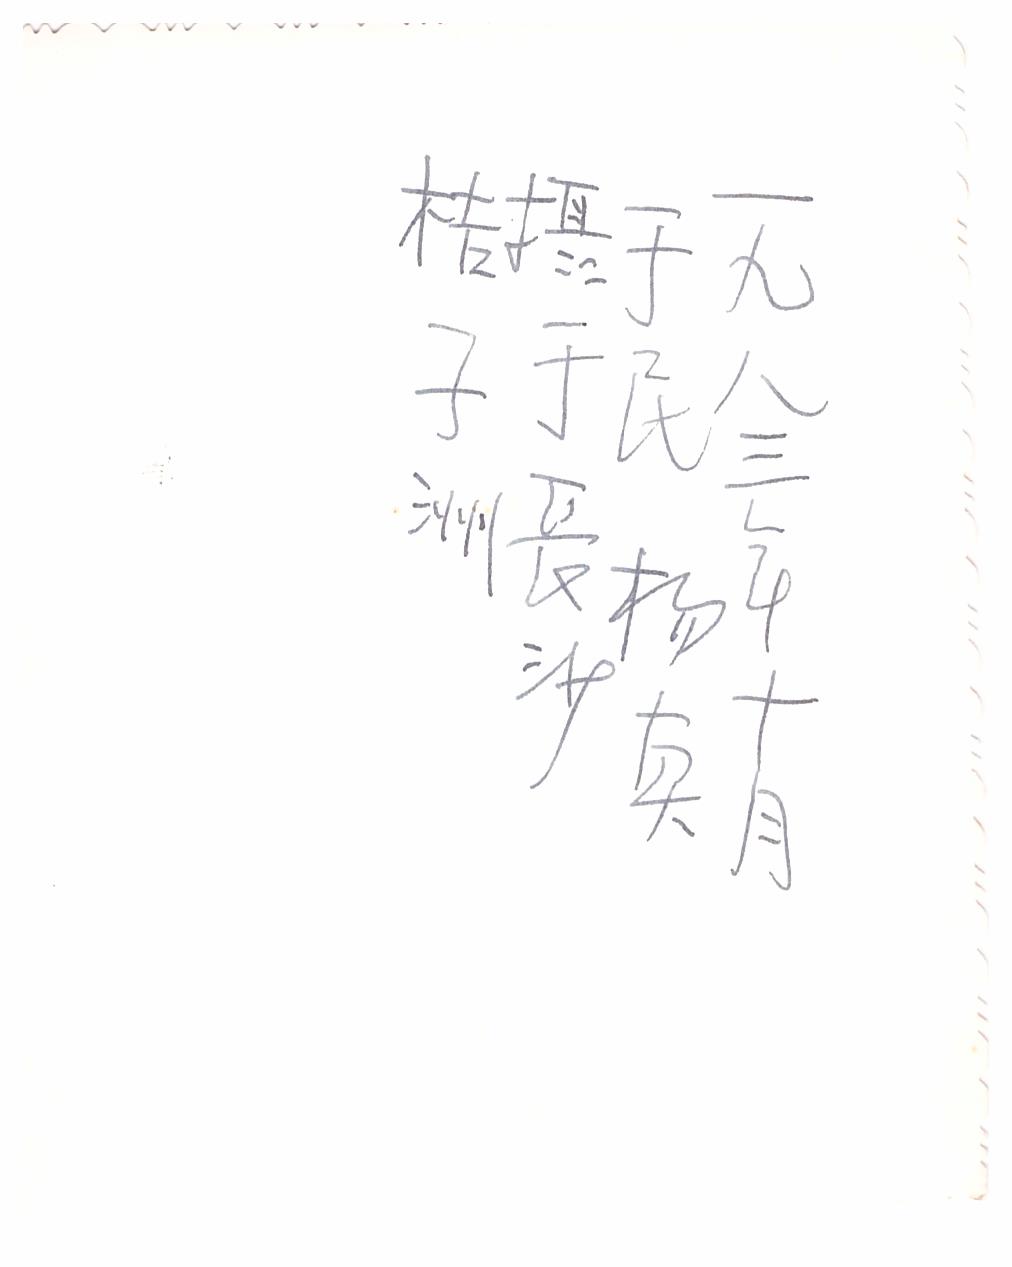 一九八三年十月
于民 杨真
摄于长沙
桔子洲